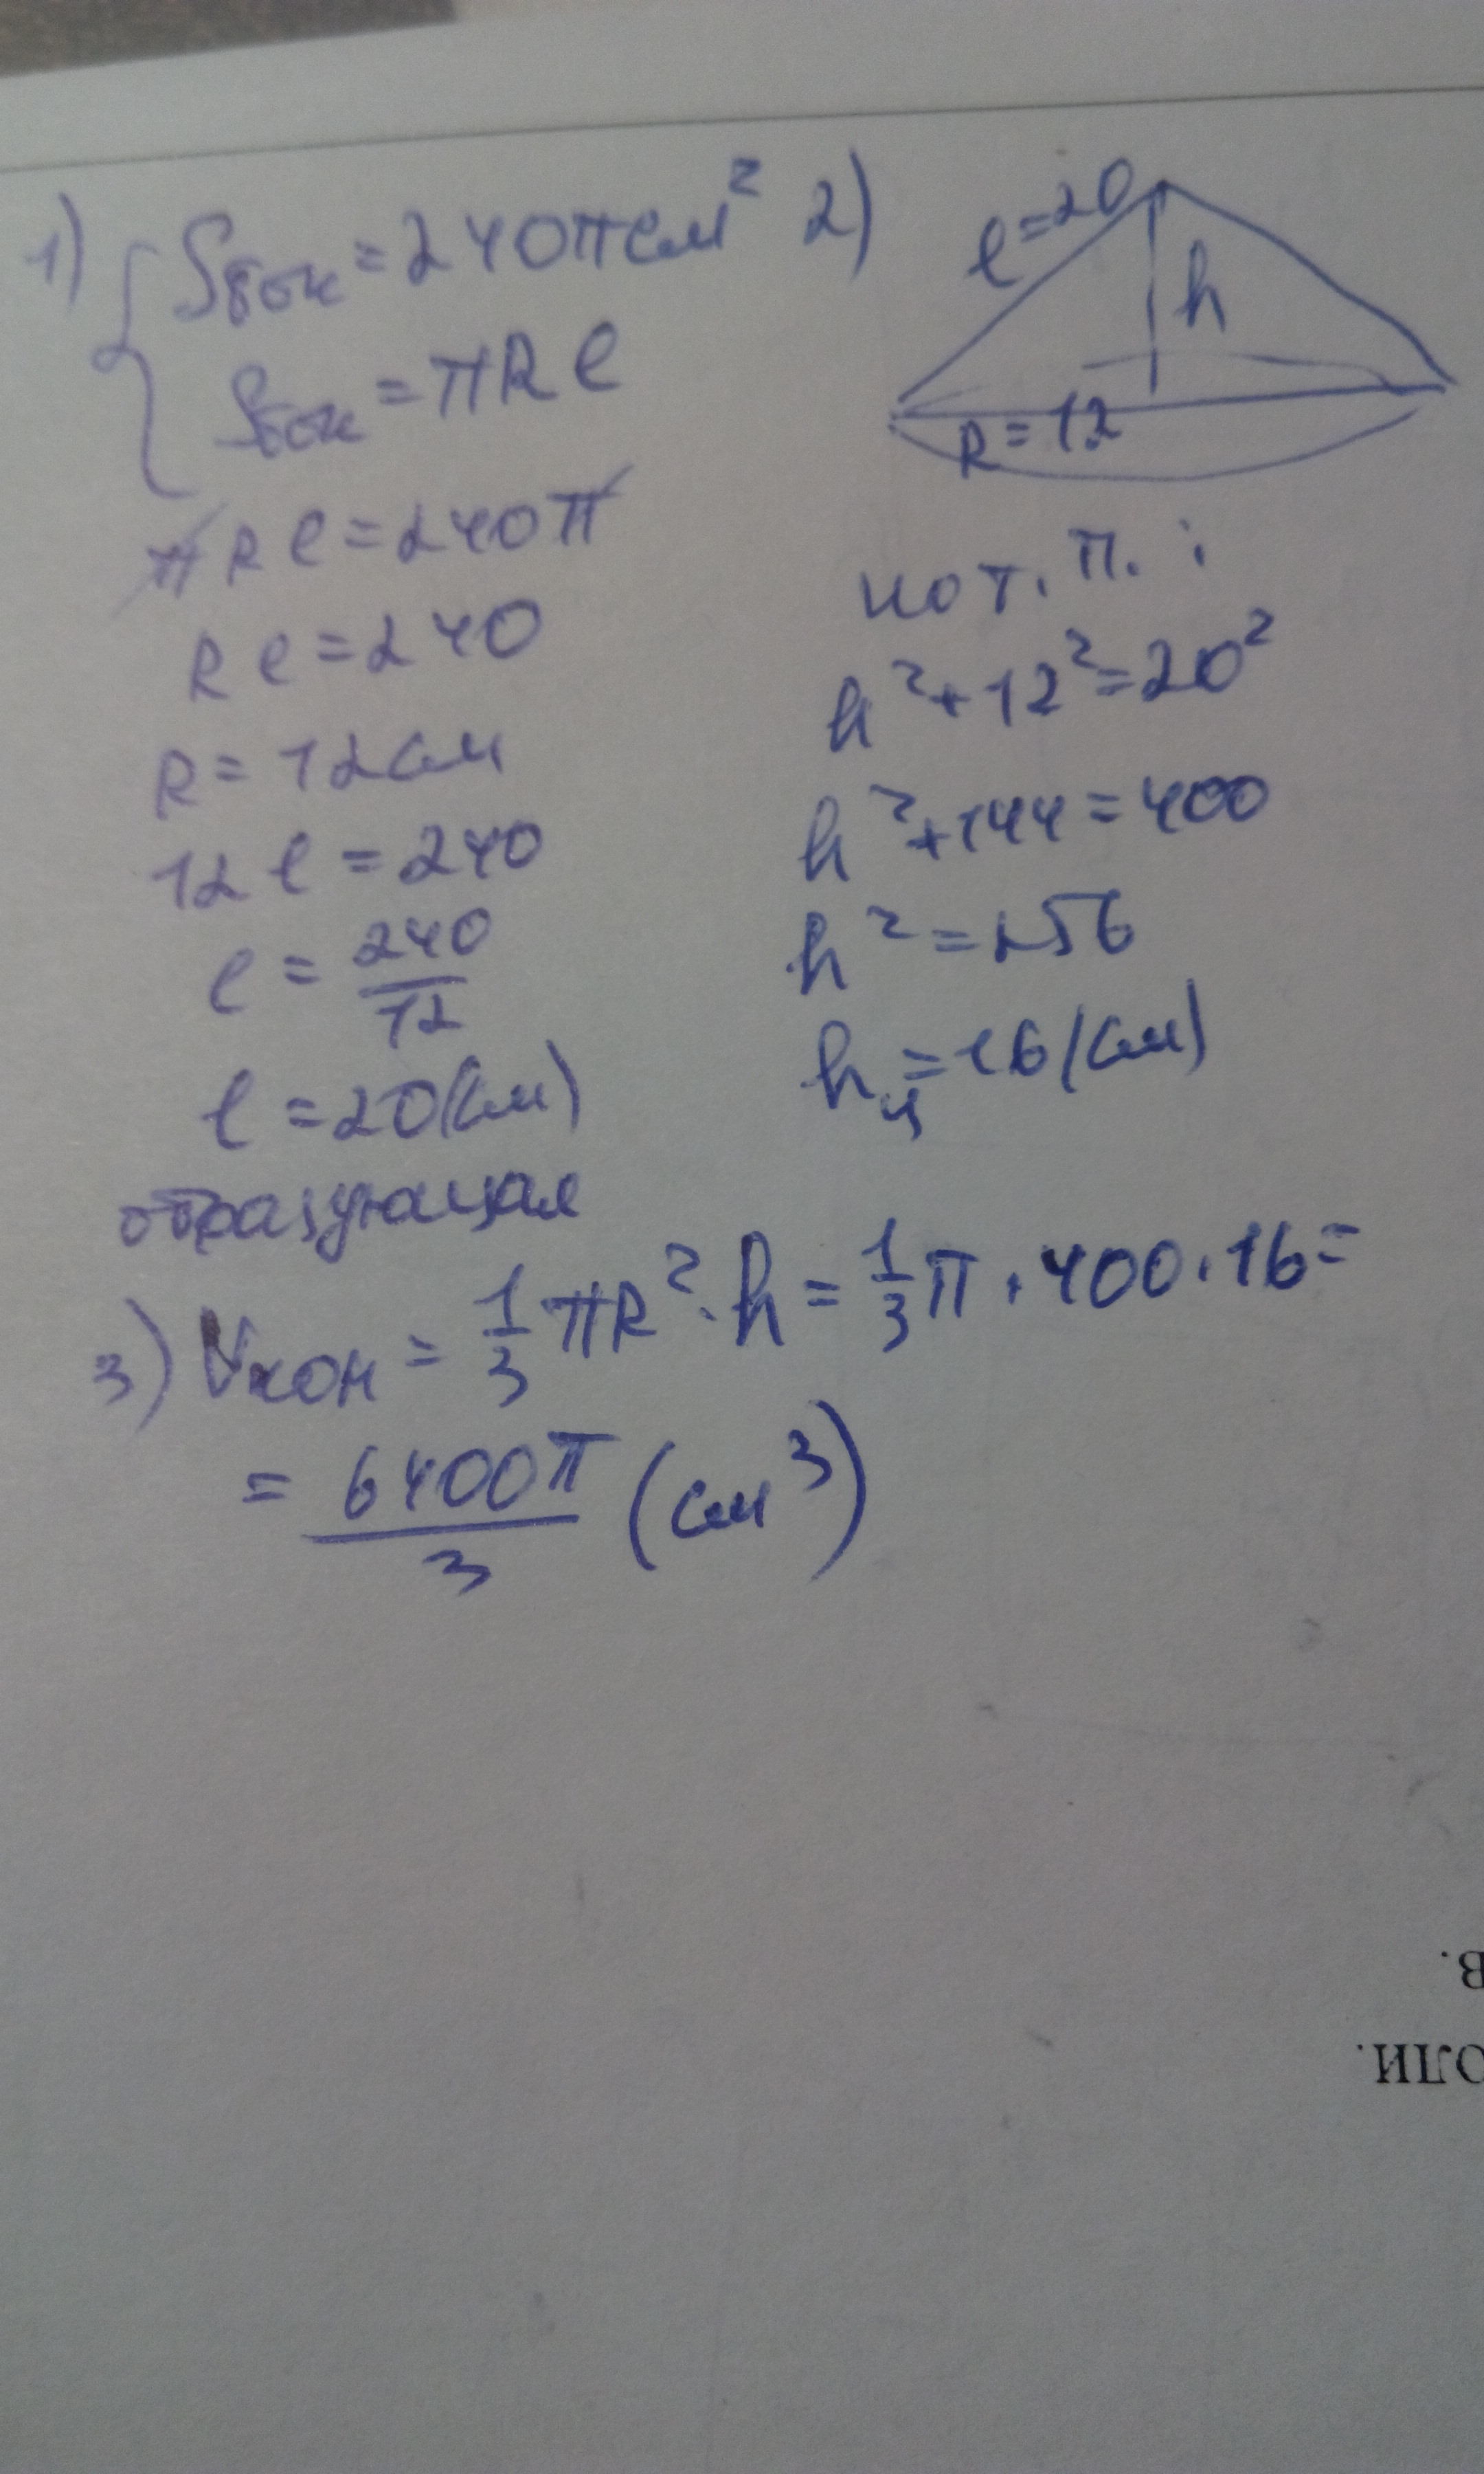 1) Sбок = 240π см²
Sбок = πRl
πRl = 240π
Rl = 240
R = 12см
12l = 240
l = 240/12
l = 20(см)
образующая
2) l = 20
h
R = 12
по т. П. :
h² + 12² = 20²
h² + 144 = 400
h² = 256
h = 16 (см)
3) Vкон = 1/3 πR² · h = 1/3 π · 400 · 16 =
= 6400π/3 (см³)
в.
оли.